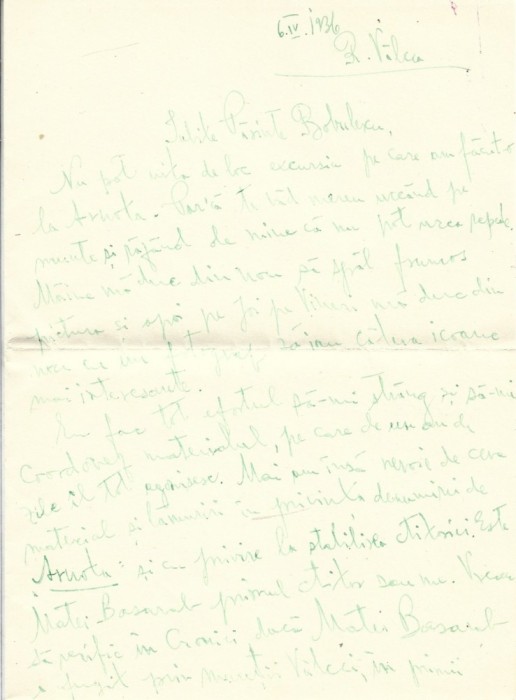 6.IV.1936
R. Vâlcea
Iubite Părinte Bobulescu,
Nu pot uita deloc excursia pe care am făcut-o
la Arnota. Parcă te văd mereu urcând pe
munte și râzând de mine că nu pot urca repede.
Mâine mă duc din nou să spăl frumos
pictura și apoi pe Joi pe Vineri mă duc din
nou cu un fotograf să iau câteva icoane
mai interesante.
Eu fac tot efortul să-mi strâng și să-mi
coordonez materialul, pe care de un an de
zile îl tot agonisesc. Mai am însă nevoie de ceva
material și lămuriri în privința denumirei de
"Arnota" și cu privire la stabilirea ctitoriei. Este
Matei-Basarab primul ctitor sau nu. Vreau
să verific în Cronici dacă Matei Basarab
a fugit prin munții Vâlcei, în primii